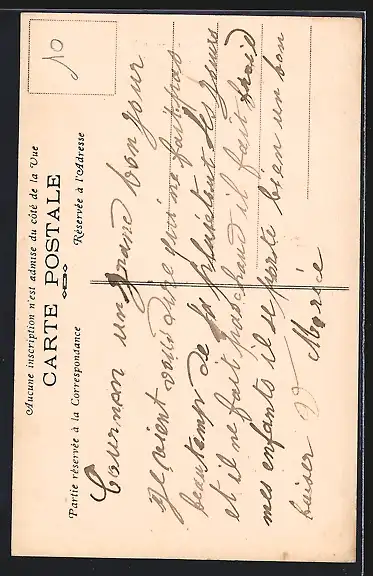 Aucune inscription n'est admise du côté de la Vue
CARTE POSTALE
Partie réservée à la Correspondance
Réservée à l'Adresse
10
Cournon un grand bonjour
je vient vous dire qui me fait pas
beautemp de la pluie tout les jours
et il ne fait pas chaud il fait froid
mes enfants il se porte bien un bon
baiser
Marie